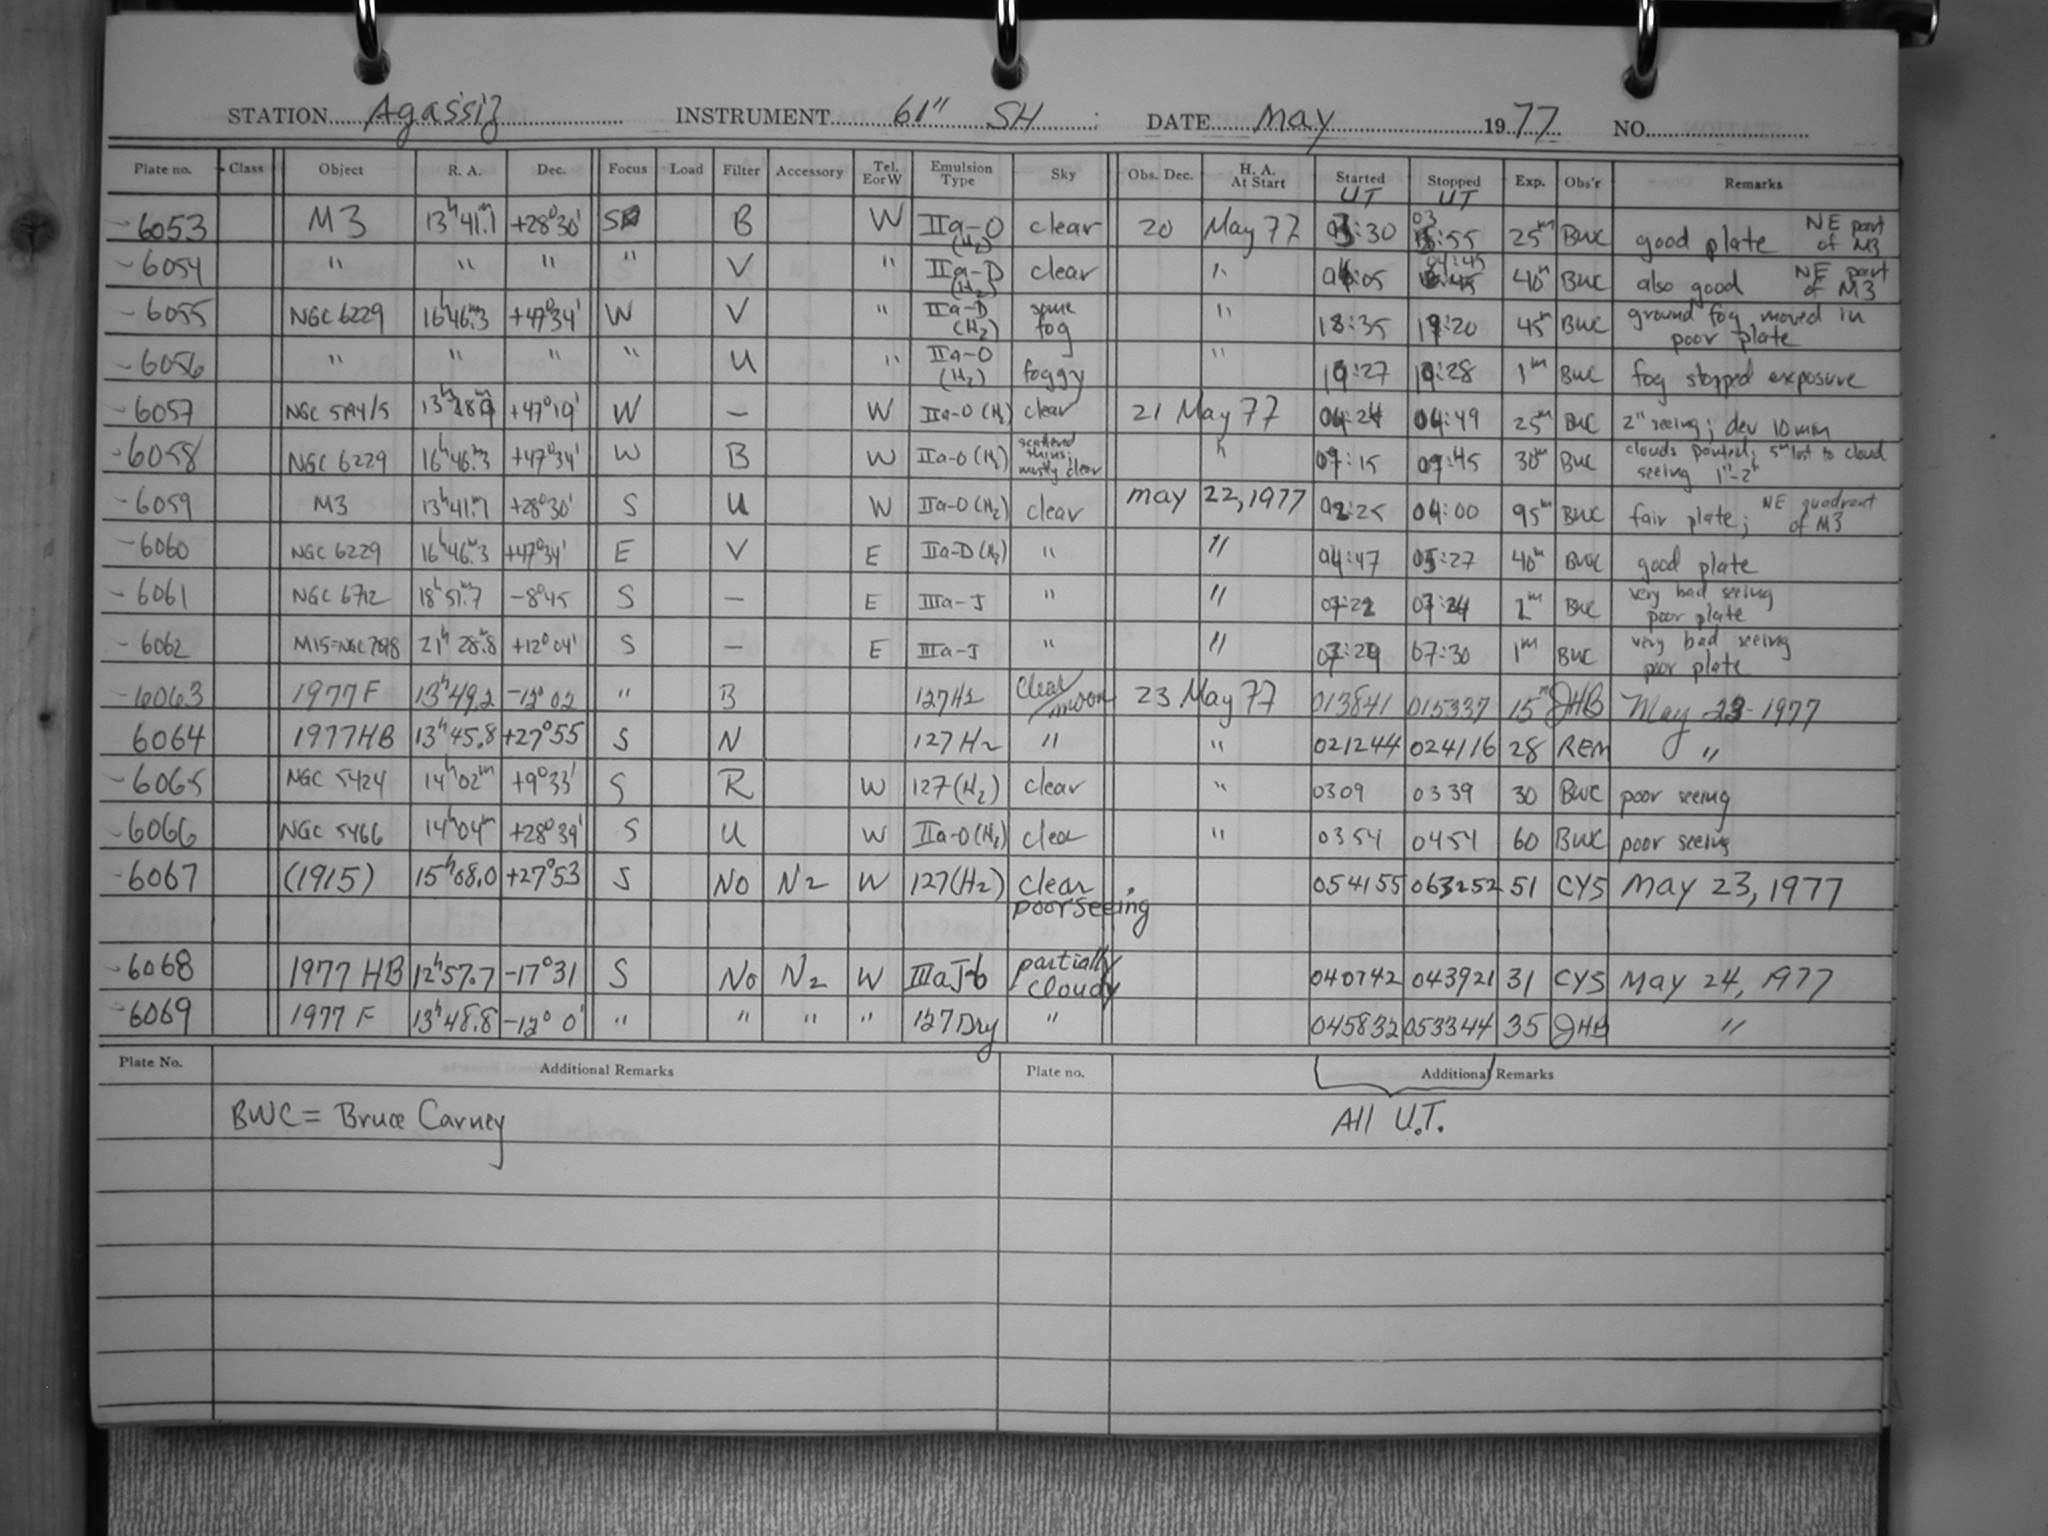 STATION Agassiz INSTRUMENT 61" SH DATE May 1977 NO.
Plate no. Class Object R. A. Dec. Focus Load Filter Accessory Tel. E or W Emulsion Type Sky Obs. Dec. H. A. At Start Started UT Stopped UT Exp. Obs'r Remarks
6053 M3 13h41.m1 +28°30' S B W IIa-O (H2) clear 20 May 77 03:30 03:55 25m BWC good plate NE part of M3
6054 " " " " V " IIa-D (H2) clear " 04:05 04:45 40m BWC also good NE part of M3
6055 NGC 6229 16h46.m3 +47°34' W V " IIa-D (H2) some fog " 18:35 19:20 45m BWC ground fog moved in poor plate
6056 " " " " U " IIa-O (H2) foggy " 19:27 19:28 1m BWC fog stopped exposure
6057 NGC 5194/5 +47°19' W – W IIa-O (H2) clear 21 May 77 04:24 04:49 25m BWC 2" seeing; dev 10 min
6058 NGC 6229 16h46.m3 +47°34' W B W IIa-O (H2) scattered thins; mostly clear " 09:15 09:45 30m BWC clouds parted; 5m lost to cloud seeing 1"-2"
6059 M3 13h41.m1 +28°30' S U W IIa-O (H2) clear May 22, 1977 02:25 04:00 95m BWC fair plate; NE quadrant of M3
6060 NGC 6229 16h46.m3 +47°34' E V E IIa-D (H2) " " 04:47 05:27 40m BWC good plate
6061 NGC 6712 18h51.m7 -8°45 S – E IIIa-J " " 07:22 07:24 2m BWC very bad seeing poor plate
6062 M15=NGC 7078 21h 28.m8 +12°04' S – E IIIa-J " " 07:29 07:30 1m BWC very bad seeing poor plate
6063 1977 F 13h49.2 -12° 02 " B 127H2 Clear/moon 23 May 77 013841 015337 15m JHB May 23 1977
6064 1977HB 13h45.8 +27°55 S N 127 H2 " " 021244 024116 28 REM "
6065 NGC 5424 14h02m +9°33' S R W 127 (H2) clear " 0309 0339 30 BWC poor seeing
6066 NGC 5466 14h04m +28°39' S U W IIa-O (H2) clear " 0354 0454 60 BWC poor seeing
6067 (1915) 15h08.0 +27°53 S No N2 W 127 (H2) clear, poor seeing 054155 063252 51 CYS May 23, 1977
6068 1977 HB 12h57.7 -17°31 S No N2 W IIIaJ-6 partially cloudy 040742 043921 31 CYS May 24, 1977
6069 1977 F 13h48.8 -12° 0' " " " " 127 Dry " 045832 053344 35 JHB "
Plate No. Additional Remarks Plate no. Additional Remarks
BWC = Bruce Carney All U.T.